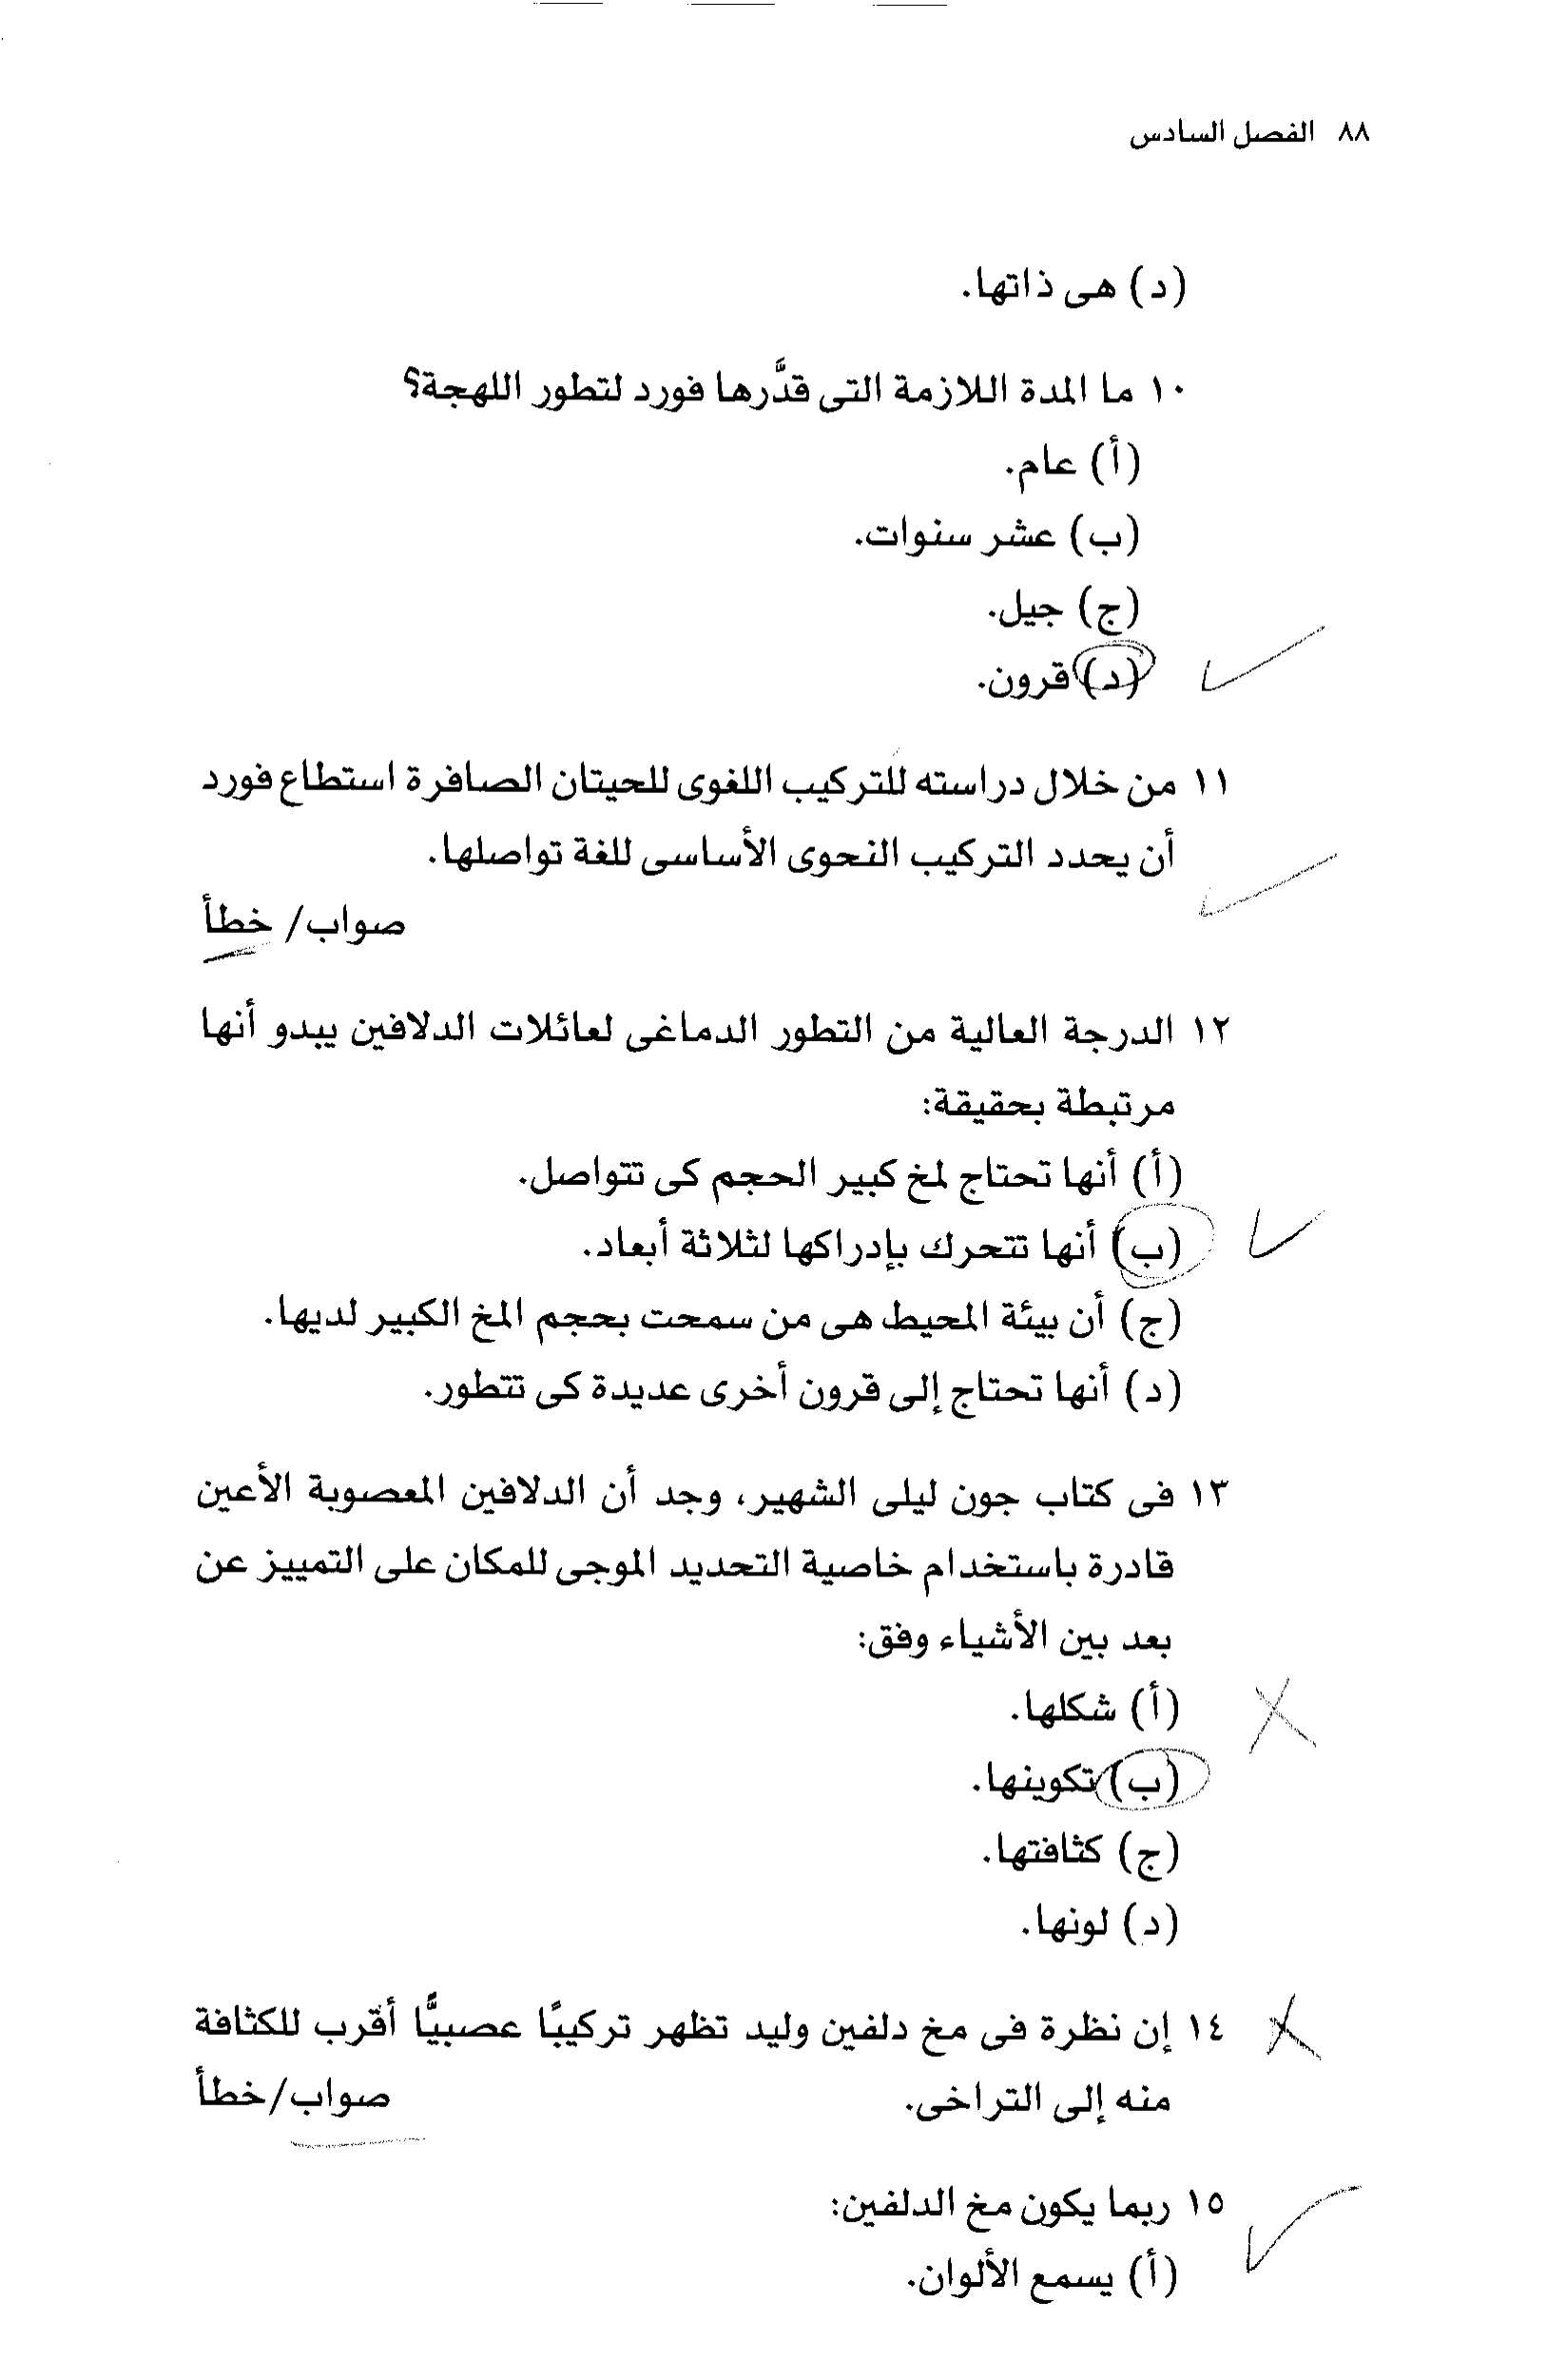 ٨٨ الفصل السادس
(د) هى ذاتها.
١٠ ما المدة اللازمة التى قدَّرها فورد لتطور اللهجة؟
(أ) عام.
(ب) عشر سنوات.
(ج) جيل.
(د) قرون.
١١ من خلال دراسته للتركيب اللغوى للحيتان الصافرة استطاع فورد
أن يحدد التركيب النحوى الأساسى للغة تواصلها.
صواب/ خطأ
١٢ الدرجة العالية من التطور الدماغى لعائلات الدلافين يبدو أنها
مرتبطة بحقيقة:
(أ) أنها تحتاج لمخ كبير الحجم كى تتواصل.
(ب) أنها تتحرك بإدراكها لثلاثة أبعاد.
(ج) أن بيئة المحيط هى من سمحت بحجم المخ الكبير لديها.
(د) أنها تحتاج إلى قرون أخرى عديدة كى تتطور.
١٣ فى كتاب جون ليلى الشهير، وجد أن الدلافين المعصوبة الأعين
قادرة باستخدام خاصية التحديد الموجى للمكان على التمييز عن
بعد بين الأشياء وفق:
(أ) شكلها.
(ب) تكوينها.
(ج) كثافتها.
(د) لونها.
١٤ إن نظرة فى مخ دلفين وليد تظهر تركيبًا عصبيًّا أقرب للكثافة
منه إلى التراخى.
صواب/خطأ
١٥ ربما يكون مخ الدلفين:
(أ) يسمع الألوان.